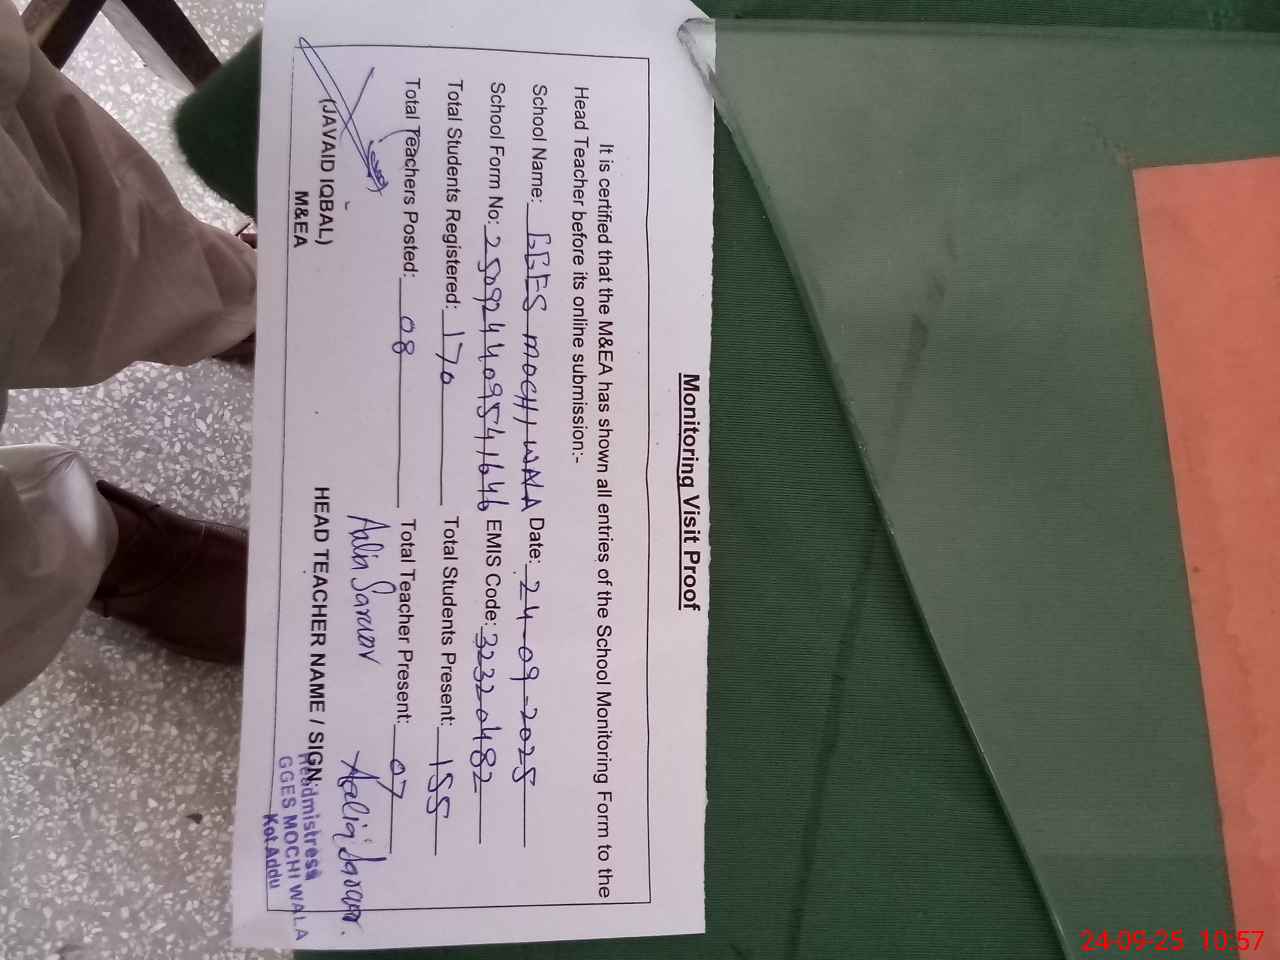 Monitoring Visit Proof
It is certified that the M&EA has shown all entries of the School Monitoring Form to the
Head Teacher before its online submission:-
School Name: GGES MOCHI WALA Date: 24-09-2025
School Form No: 250924409541646 EMIS Code: 32320482
Total Students Registered: 170 Total Students Present: 155
Total Teachers Posted: 08 Total Teacher Present: 07
Aalia Sarwar Aalia Sarwar.
(JAVAID IQBAL) HEAD TEACHER NAME / SIGN:
M&EA
Headmistress
GGES MOCHI WALA
Kot Addu
24-09-25 10:57